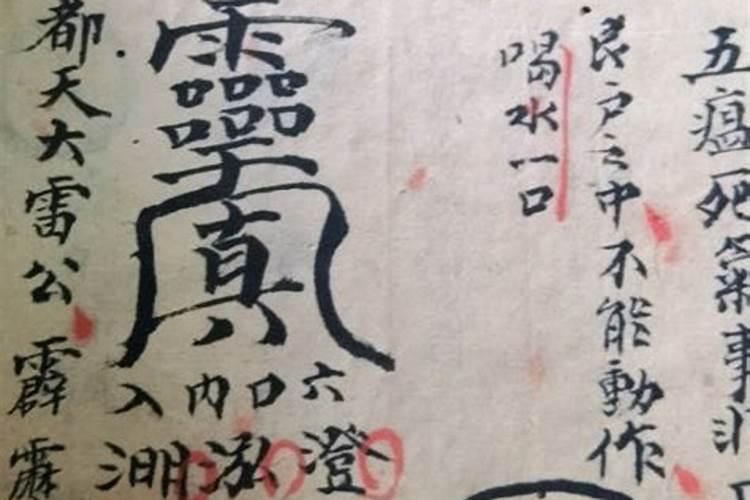 五瘟死氣事非
艮户之中不能動作
喝水一口
真
六口内入
澄泓
都天大雷公霹靂